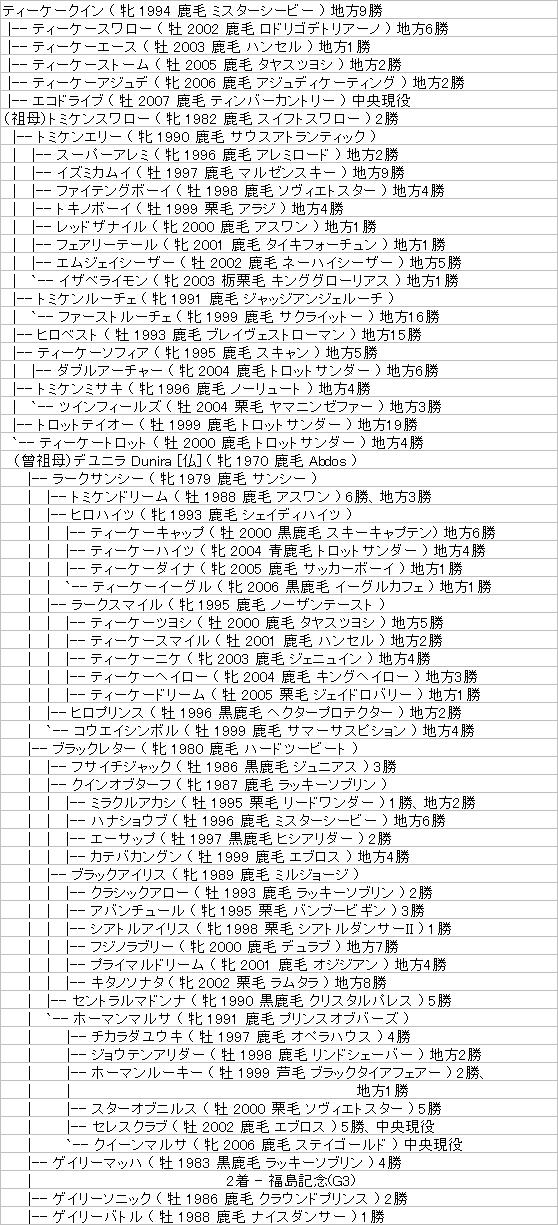 ティーケークイン ( 牝 1994 鹿毛 ミスターシービー ) 地方9勝
|-- ティーケースワロー ( 牡 2002 鹿毛 ロドリゴデトリアーノ ) 地方6勝
|-- ティーケーエース ( 牡 2003 鹿毛 ハンセル ) 地方1勝
|-- ティーケーストーム ( 牡 2005 鹿毛 タヤスツヨシ ) 地方2勝
|-- ティーケーアジュデ ( 牝 2006 鹿毛 アジュディケーティング ) 地方2勝
|-- エコドライブ ( 牡 2007 鹿毛 ティンバーカントリー ) 中央現役
(祖母)トミケンスワロー ( 牝 1982 鹿毛 スイフトスワロー ) 2勝
|-- トミケンエリー ( 牝 1990 鹿毛 サウスアトランティック )
| |-- スーパーアレミ ( 牝 1996 鹿毛 アレミロード ) 地方2勝
| |-- イズミカムイ ( 牡 1997 鹿毛 マルゼンスキー ) 地方9勝
| |-- ファイテングボーイ ( 牡 1998 鹿毛 ソヴィエトスター ) 地方4勝
| |-- トキノボーイ ( 牡 1999 栗毛 アラジ ) 地方4勝
| |-- レッドザナイル ( 牝 2000 鹿毛 アスワン ) 地方1勝
| |-- フェアリーテール ( 牝 2001 鹿毛 タイキフォーチュン ) 地方1勝
| |-- エムジェイシーザー ( 牡 2002 鹿毛 ネーハイシーザー ) 地方5勝
| `-- イザベライモン ( 牝 2003 栃栗毛 キンググローリアス ) 地方1勝
|-- トミケンルーチェ ( 牝 1991 鹿毛 ジャッジアンジェルーチ )
| `-- ファーストルーチェ ( 牝 1999 鹿毛 サクライットー ) 地方16勝
|-- ヒロベスト ( 牡 1993 鹿毛 ブレイヴェストローマン ) 地方15勝
|-- ティーケーソフィア ( 牝 1995 鹿毛 スキャン ) 地方5勝
| |-- ダブルアーチャー ( 牝 2004 鹿毛 トロットサンダー ) 地方6勝
|-- トミケンミサキ ( 牝 1996 鹿毛 ノーリュート ) 地方4勝
| `-- ツインフィールズ ( 牡 2004 栗毛 ヤマニンゼファー ) 地方3勝
|-- トロットテイオー ( 牡 1999 鹿毛 トロットサンダー ) 地方19勝
`-- ティーケートロット ( 牡 2000 鹿毛 トロットサンダー ) 地方4勝
(曾祖母)デユニラ Dunira [仏] ( 牝 1970 鹿毛 Abdos )
|-- ラークサンシー ( 牝 1979 鹿毛 サンシー )
| |-- トミケンドリーム ( 牡 1988 鹿毛 アスワン ) 6勝、地方3勝
| |-- ヒロハイツ ( 牝 1993 鹿毛 シェイディハイツ )
| | |-- ティーケーキャップ ( 牡 2000 黒鹿毛 スキーキャプテン) 地方6勝
| | |-- ティーケーハイツ ( 牝 2004 青鹿毛 トロットサンダー ) 地方4勝
| | |-- ティーケーダイナ ( 牝 2005 鹿毛 サッカーボーイ ) 地方1勝
| | `-- ティーケーイーグル ( 牝 2006 黒鹿毛 イーグルカフェ ) 地方1勝
| |-- ラークスマイル ( 牝 1995 鹿毛 ノーザンテースト )
| | |-- ティーケーツヨシ ( 牡 2000 鹿毛 タヤスツヨシ ) 地方5勝
| | |-- ティーケースマイル ( 牡 2001 鹿毛 ハンセル ) 地方2勝
| | |-- ティーケーニケ ( 牝 2003 鹿毛 ジェニュイン ) 地方4勝
| | |-- ティーケーヘイロー ( 牝 2004 鹿毛 キングヘイロー ) 地方3勝
| | |-- ティーケードリーム ( 牡 2005 栗毛 ジェイドロバリー ) 地方1勝
| |-- ヒロプリンス ( 牡 1996 黒鹿毛 ヘクタープロテクター ) 地方2勝
| `-- コウエイシンボル ( 牡 1999 鹿毛 サマーサスピション ) 地方4勝
|-- ブラックレター ( 牝 1980 鹿毛 ハードツービート )
| |-- フサイチジャック ( 牡 1986 黒鹿毛 ジュニアス ) 3勝
| |-- クインオブターフ ( 牝 1987 鹿毛 ラッキーソブリン )
| | |-- ミラクルアカシ ( 牡 1995 栗毛 リードワンダー ) 1勝、地方2勝
| | |-- ハナショウブ ( 牝 1996 鹿毛 ミスターシービー ) 地方6勝
| | |-- エーサップ ( 牡 1997 黒鹿毛 ヒシアリダー ) 2勝
| | |-- カテバカングン ( 牡 1999 鹿毛 エブロス ) 地方4勝
| |-- ブラックアイリス ( 牝 1989 鹿毛 ミルジョージ )
| | |-- クラシックアロー ( 牡 1993 鹿毛 ラッキーソブリン ) 2勝
| | |-- アバンチュール ( 牝 1995 栗毛 バンブービギン ) 3勝
| | |-- シアトルアイリス ( 牝 1998 栗毛 シアトルダンサーII ) 1勝
| | |-- フジノラブリー ( 牝 2000 鹿毛 デュラブ ) 地方7勝
| | |-- プライマルドリーム ( 牝 2001 鹿毛 オジジアン ) 地方4勝
| | |-- キタノソナタ ( 牝 2002 栗毛 ラムタラ ) 地方8勝
| |-- セントラルマドンナ ( 牝 1990 黒鹿毛 クリスタルパレス ) 5勝
| `-- ホーマンマルサ ( 牝 1991 鹿毛 プリンスオブバーズ )
| |-- チカラダユウキ ( 牡 1997 鹿毛 オペラハウス ) 4勝
| |-- ジョウテンアリダー ( 牡 1998 鹿毛 リンドシェーバー ) 地方2勝
| |-- ホーマンルーキー ( 牡 1999 芦毛 ブラックタイアフェアー ) 2勝、
| | 地方1勝
| |-- スターオブニルス ( 牡 2000 栗毛 ソヴィエトスター ) 5勝
| |-- セレスクラブ ( 牡 2002 鹿毛 エブロス ) 5勝、中央現役
| `-- クイーンマルサ ( 牝 2006 鹿毛 ステイゴールド ) 中央現役
|-- ゲイリーマッハ ( 牡 1983 黒鹿毛 ラッキーソブリン ) 4勝
| 2着 - 福島記念(G3)
|-- ゲイリーソニック ( 牡 1986 鹿毛 クラウンドプリンス ) 2勝
|-- ゲイリーバトル ( 牡 1988 鹿毛 ナイスダンサー ) 1勝